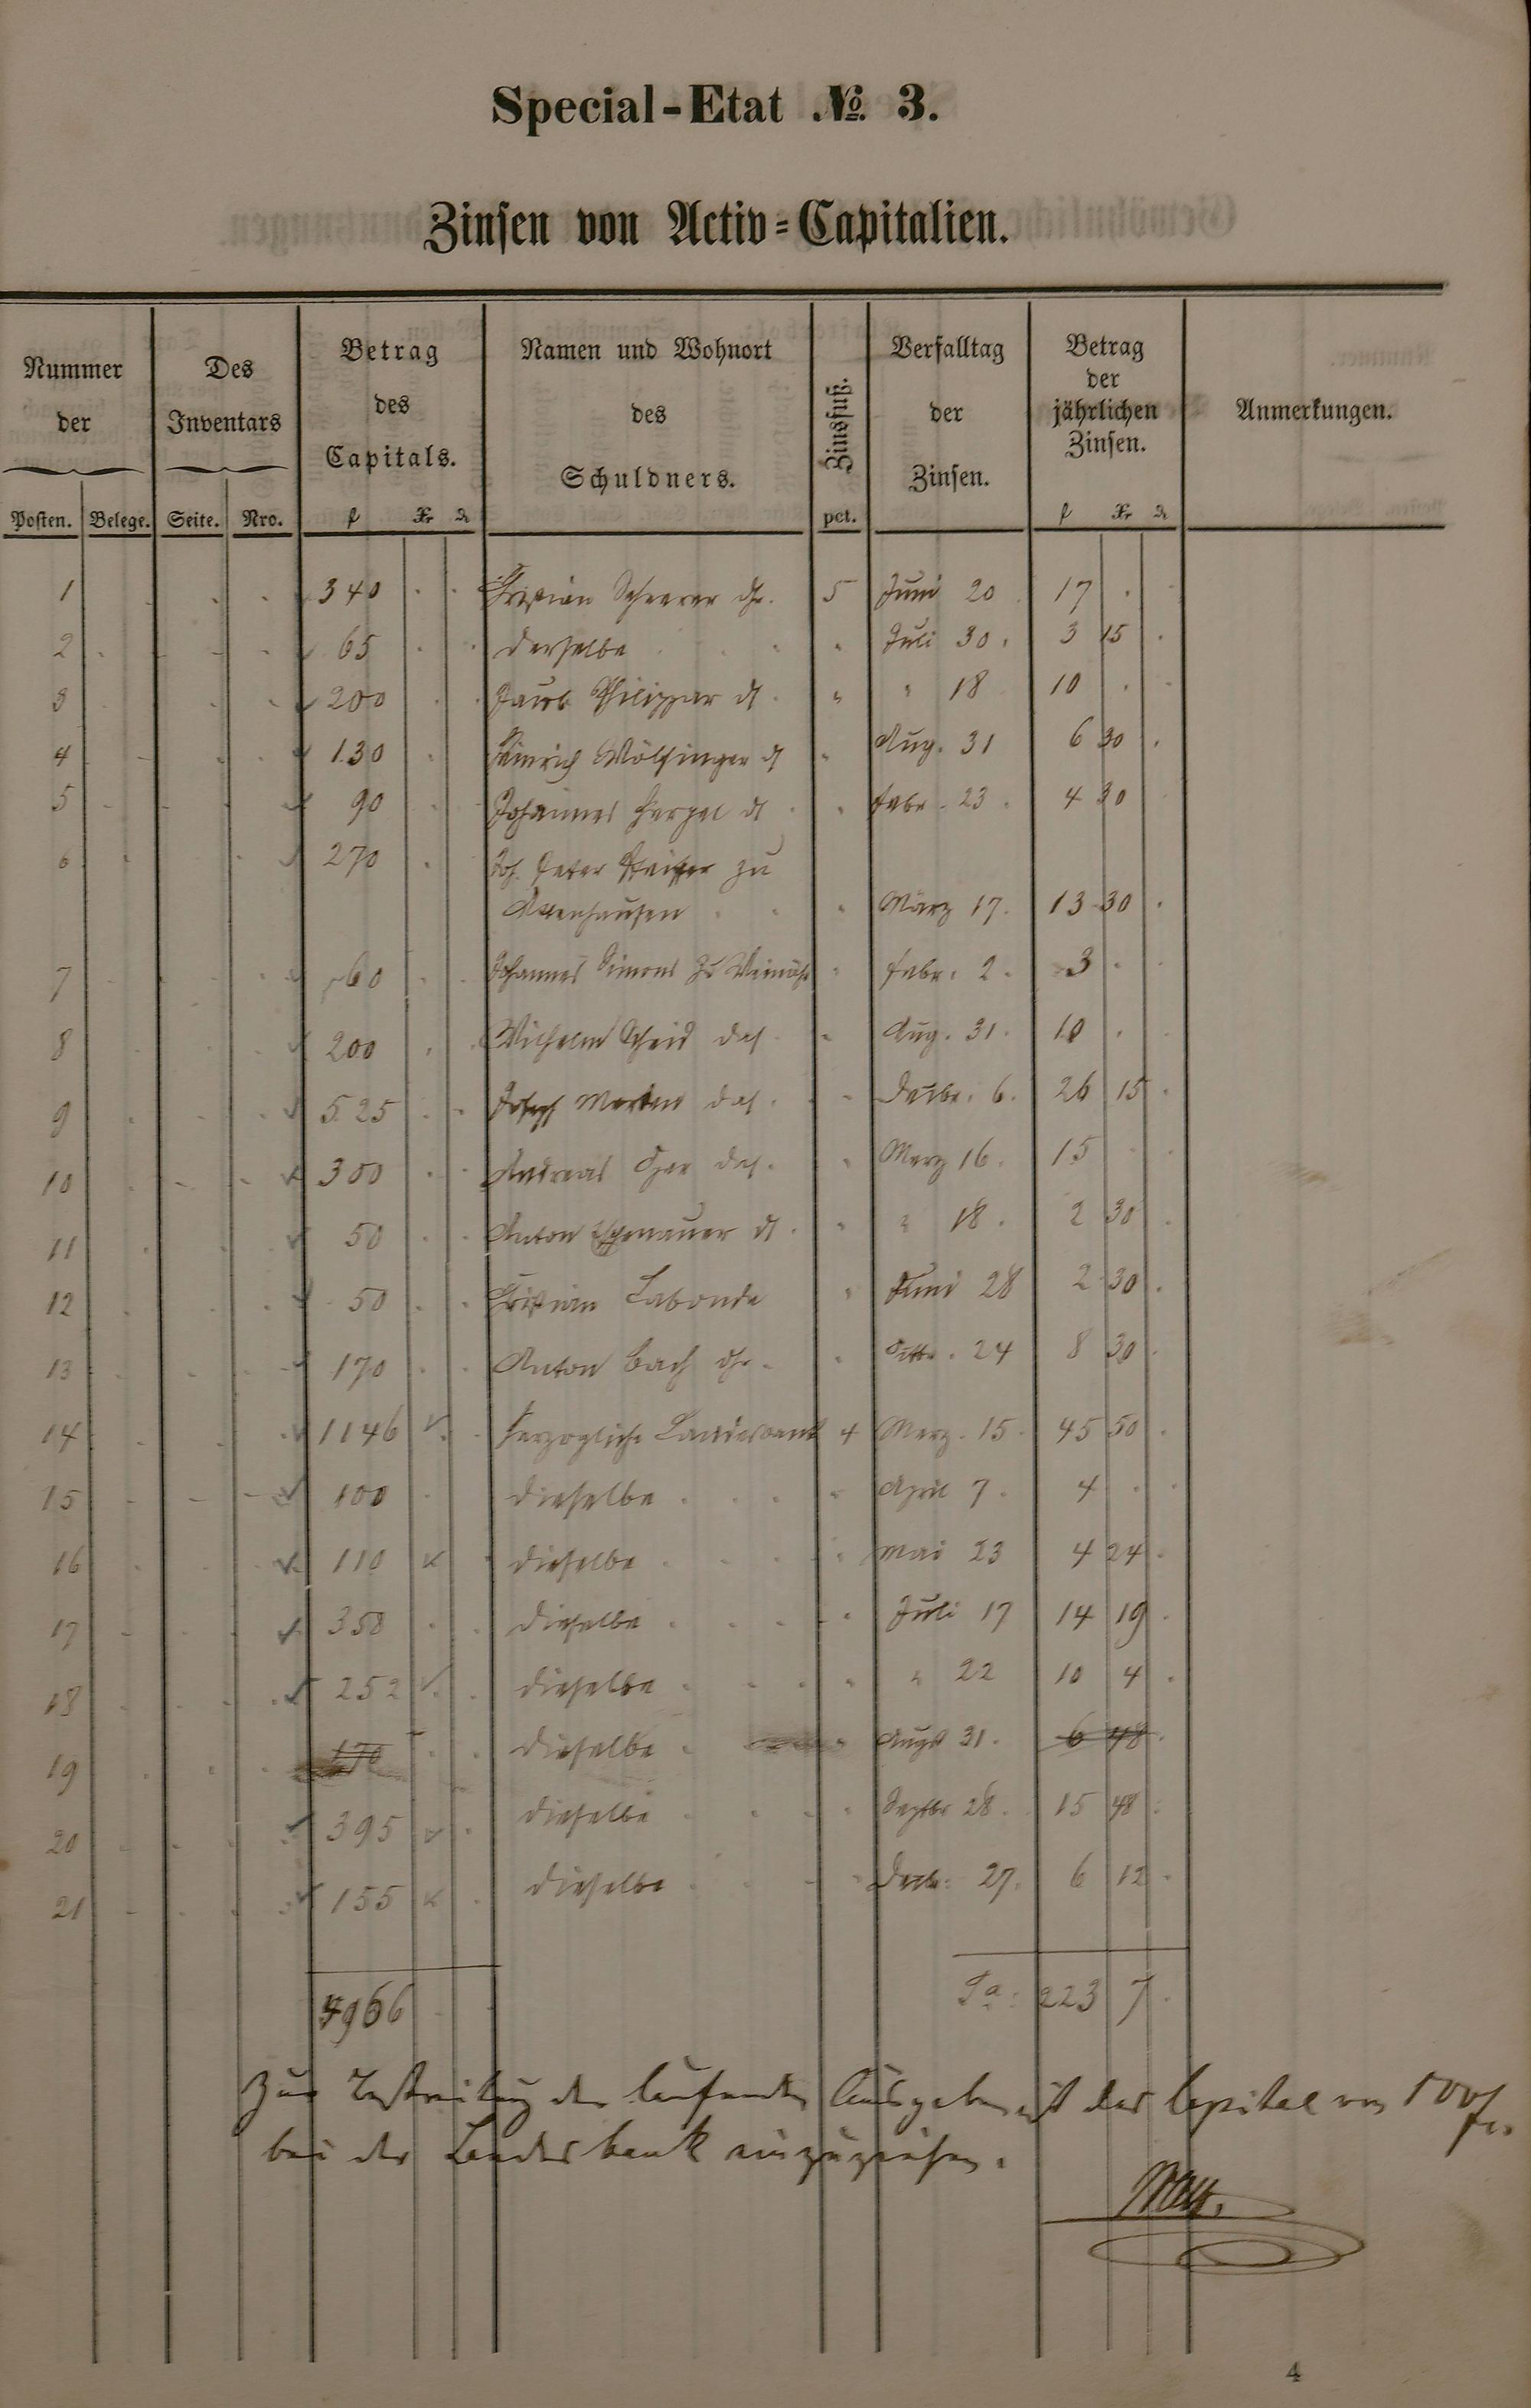 Special-Etat No. 3.
Zinsen von Activ-Capitalien.
Nummer der
Des Inventars
Betrag des Capitals.
Namen und Wohnort des Schuldners.
Zinsfuß.
Verfalltag der Zinsen.
Betrag der jährlichen Zinsen.
Anmerkungen.
Posten. Belege. Seite. Nro. f Xr pct. f Xr
1 340 Christian Scheerer 5 Juni 20 17
2 65 derselbe " Juli 30. 3 15
3 200 Jacob Philippar " " 18 10
4 130 Heinrich Wölfinger " Aug. 31 6 30
5 90 Johannes " Febr. 23 4 30
6 270 Joh. Peter zu
Attenhausen " März 17. 13 30
7 60 Johannes Simons zu Weinähr " Febr. 2. 3
8 200 Wilhelm Scheid das. " Aug. 31. 10
9 525 Joseph das. " Decbr. 6. 26 15
10 300 Andreas das. " Merz 16. 15
11 50 Anton " " 18. 2 30
12 50 Christian Labonde " Juni 28 2 30
13 170 Anton Bach " 24 8 30
14 1146 Herzogliche Landesbank 4 Merz. 15 45 50
15 100 dieselbe " April 7. 4
16 110 dieselbe " Mai 23 4 24
17 358 dieselbe " Juli 17 14 19
18 252 dieselbe " " 22 10 4
19 170 dieselbe " Augst 31. 6 48
20 395 dieselbe " Septbr 28. 15 48
21 155 dieselbe " Decbr. 27. 6 12
4966 Sa: 223 7
Zur Bestreitung der laufenden Ausgaben ist das Capital von
bei der Landesbank einzuziehen.
4